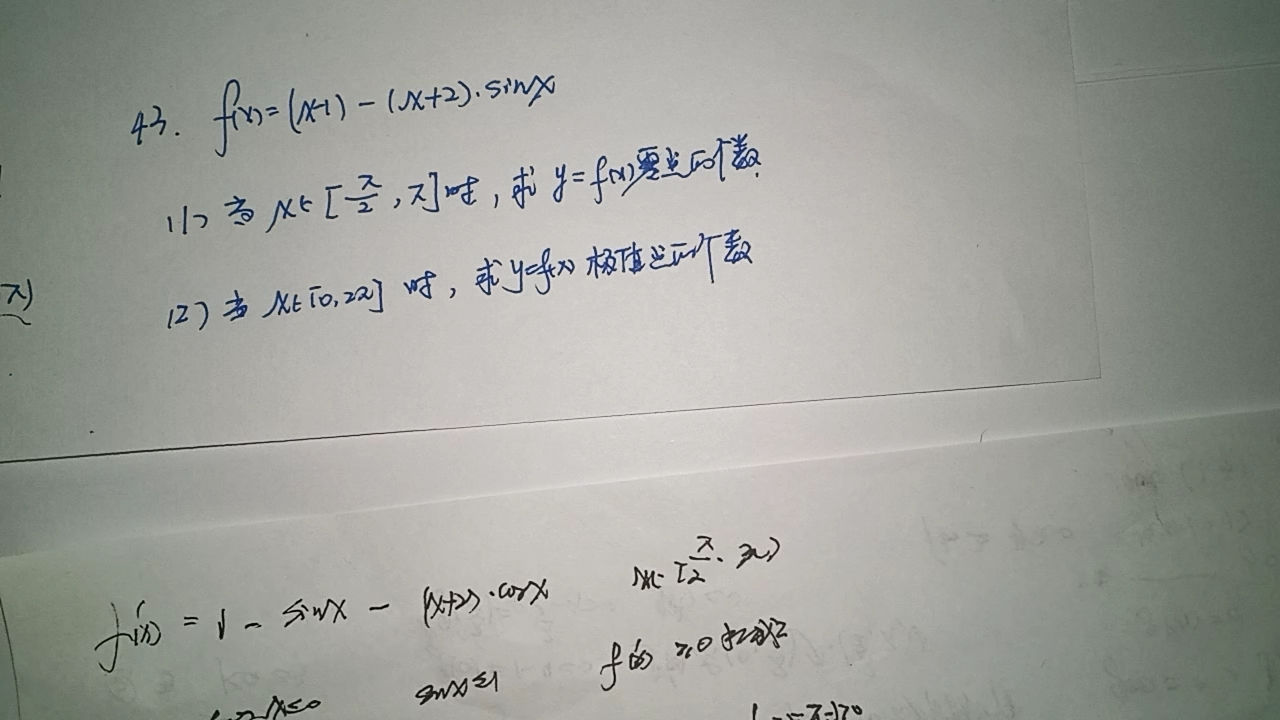 43. f(x)=(x-1)-(x+2)·sinx
(1) 当 x∈[π/2, π]时, 求 y=f(x)零点的个数.
(2) 当 x∈[0, 2π] 时, 求y=f(x) 极值点的个数
π)
f'(x) = 1 - sinx - (x+2)·cosx x∈[π/2,
f'(x) ≥0
cosx≤0 sinx≤1